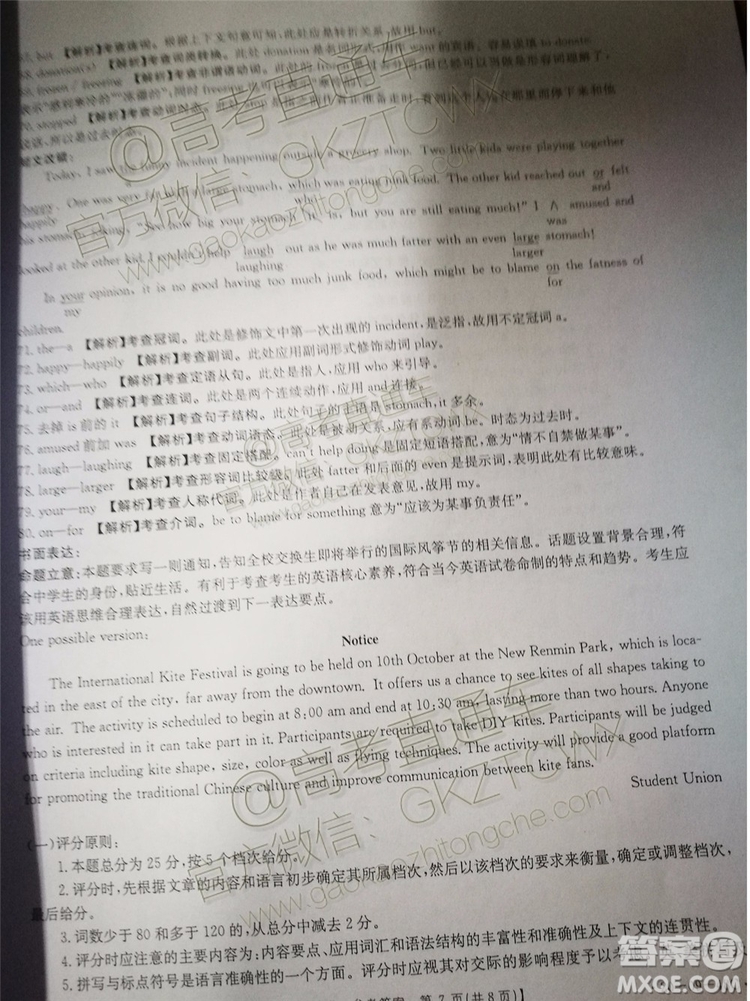 67. but 【解析】考查连词。根据上下文句意可知,此处应是转折关系,故用 but。
68. donation(s) 【解析】考查词性转换。此处 donation 是名词形式,作 want 的宾语。容易误填 to donate.
69. frozen / freezing 【解析】考查非谓语动词。
表示“感到寒冷的”“冰疆的”,同时 freezing 也可
70. stopped 【解析】考查动词时态。此处 stop 是指
谈话,所以是过去时态。
短文改错:
Today, I saw the funny incident happening outside a grocery shop. Two little kids were playing together
a
happy. One was very large stomach, which was eating junk food. The other kid reached out or felt
happily who and
his stomach, asking, “See how big your stomach it is, but you are still eating much!” I ∧ amused and
was
looked at the other kid. I couldn't help laugh out as he was much fatter with an even large stomach!
laughing larger
In your opinion, it is no good having too much junk food, which might be to blame on the fatness of
my for
children.
71. the—a 【解析】考查冠词。此处是修饰文中第一次出现的 incident,是泛指,故用不定冠词 a。
72. happy—happily 【解析】考查副词。此处应用副词形式修饰动词 play。
73. which—who 【解析】考查定语从句。此处是指人,应用 who 来引导。
74. or—and 【解析】考查连词。此处是两个连续动作,应用 and 连接。
75. 去掉 is 前的 it 【解析】考查句子结构。此处句子的主语是 stomach,it 多余。
76. amused 前加 was 【解析】考查动词语态。此处是被动关系,应有系动词 be。时态为过去时。
77. laugh—laughing 【解析】考查固定搭配。can't help doing 是固定短语搭配,意为“情不自禁做某事”。
78. large—larger 【解析】考查形容词比较级。此处 fatter 和后面的 even 是提示词,表明此处有比较意味。
79. your—my 【解析】考查人称代词。此处是作者自己在发表意见,故用 my。
80. on—for 【解析】考查介词。be to blame for something 意为“应该为某事负责任”。
书面表达:
命题立意:本题要求写一则通知,告知全校交换生即将举行的国际风筝节的相关信息。话题设置背景合理,符
合中学生的身份,贴近生活。有利于考查考生的英语核心素养,符合当今英语试卷命制的特点和趋势。考生应
该用英语思维合理表达,自然过渡到下一表达要点。
One possible version:
Notice
The International Kite Festival is going to be held on 10th October at the New Renmin Park, which is loca-
ted in the east of the city, far away from the downtown. It offers us a chance to see kites of all shapes taking to
the air. The activity is scheduled to begin at 8:00 am and end at 10:30 am, lasting more than two hours. Anyone
who is interested in it can take part in it. Participants are required to take DIY kites. Participants will be judged
on criteria including kite shape, size, color as well as flying techniques. The activity will provide a good platform
for promoting the traditional Chinese culture and improve communication between kite fans.
Student Union
(一)评分原则:
1. 本题总分为 25 分,按 5 个档次给分。
2. 评分时,先根据文章的内容和语言初步确定其所属档次,然后以该档次的要求来衡量,确定或调整档次,
最后给分。
3. 词数少于 80 和多于 120 的,从总分中减去 2 分。
4. 评分时应注意的主要内容为:内容要点、应用词汇和语法结构的丰富性和准确性及上下文的连贯性。
5. 拼写与标点符号是语言准确性的一个方面。评分时应视其对交际的影响程度予以考
参考答案 第 7 页(共 8 页)】
@高考直通车
官方微信:GKZTCWX
www.gaokaozhitongche.com
@高考直通车
官方微信:GKZTCWX
答案圈
MXQE.COM